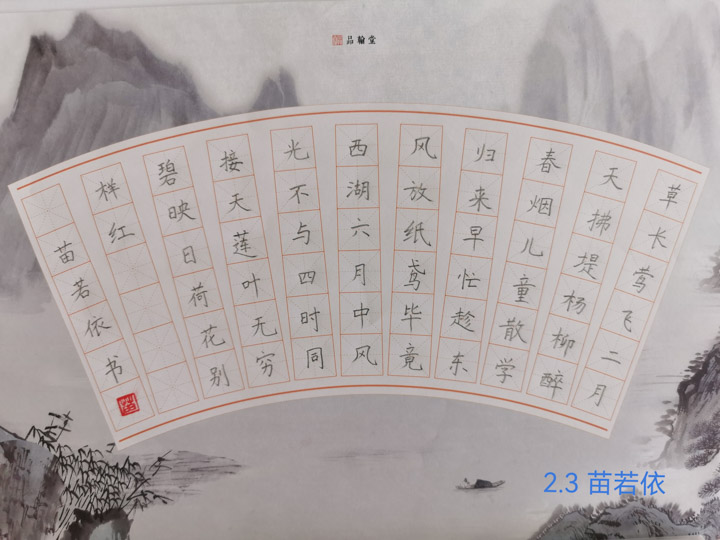 品翰堂
草长莺飞二月
天拂堤杨柳醉
春烟儿童散学
归来早忙趁东
风放纸鸢毕竟
西湖六月中风
光不与四时同
接天莲叶无穷
碧映日荷花别
样红
苗若依书
2.3 苗若依